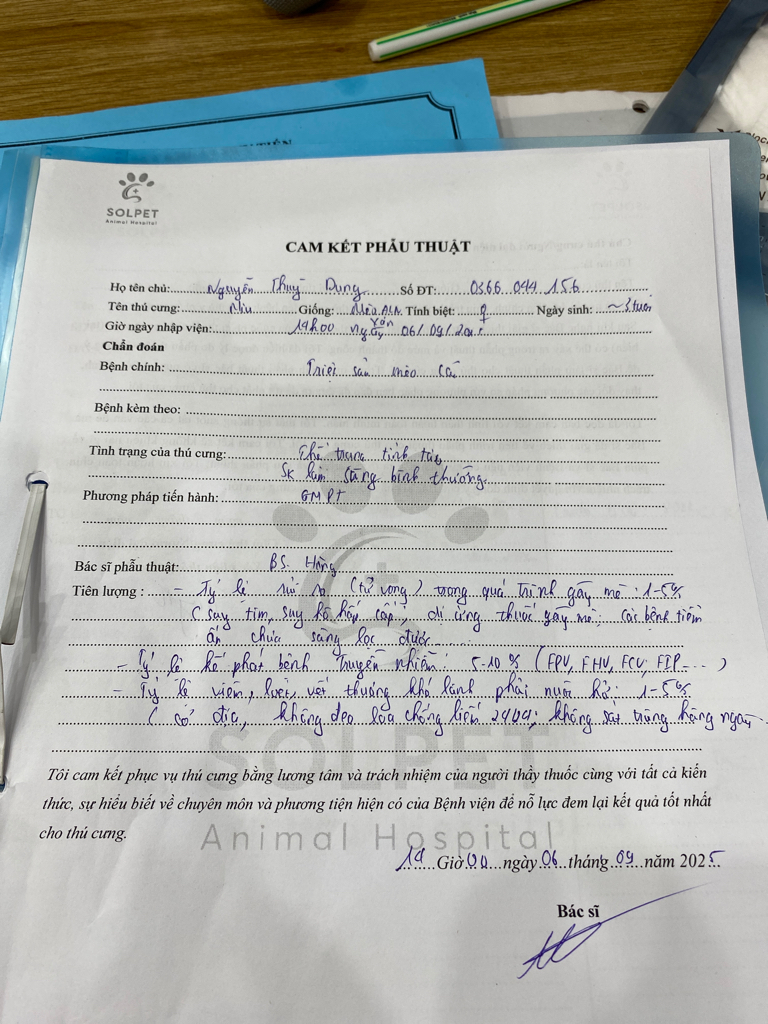 SOLPET
Animal Hospital
CAM KẾT PHẪU THUẬT
Họ tên chủ: Nguyễn Thuỳ Dung Số ĐT: 0366 044 156
Tên thú cưng: Miu Giống: Mèo ALN Tính biệt: ♀ Ngày sinh: ~3 tuổi
Giờ ngày nhập viện: 14h00 ngày 06/09/
Chẩn đoán
Bệnh chính: Triệt sản mèo cái
Bệnh kèm theo:
Tình trạng của thú cưng: Thể trạng tỉnh táo,
SK lâm sàng bình thường.
Phương pháp tiến hành: GMPT
Bác sĩ phẫu thuật: BS. Hồng
Tiên lượng : - Tỷ lệ rủi ro (tử vong) trong quá trình gây mê: 1-5%
(suy tim, suy hô hấp cấp, dị ứng thuốc gây mê; các bệnh tiềm
ẩn chưa sàng lọc được
- Tỷ lệ kế phát bệnh truyền nhiễm: 5-10% (FPV, FHV, FCV, FIP...)
- Tỷ lệ viêm, loét, vết thương khó lành phải : 1-5%
(cơ địa, không đeo loa chống liếm 24/24; không sát trùng hàng ngày
SOLPET
Animal Hospital
Tôi cam kết phục vụ thú cưng bằng lương tâm và trách nhiệm của người thầy thuốc cùng với tất cả kiến
thức, sự hiểu biết về chuyên môn và phương tiện hiện có của Bệnh viện để nỗ lực đem lại kết quả tốt nhất
cho thú cưng.
14 Giờ 00 ngày 06 tháng 09 năm 2025
Bác sĩ